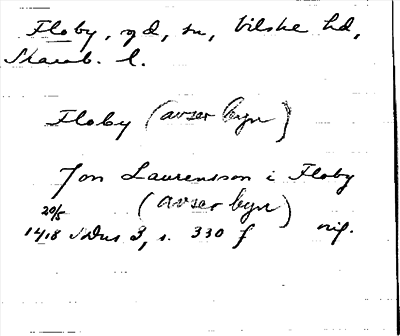 Floby, gd, sn, Vilske hd,
Skarab. l.
Floby (avser byn)
Jon Laurensson i Floby
(avser byn)
20/5
1418 SDns 3, s. 330 f orig.